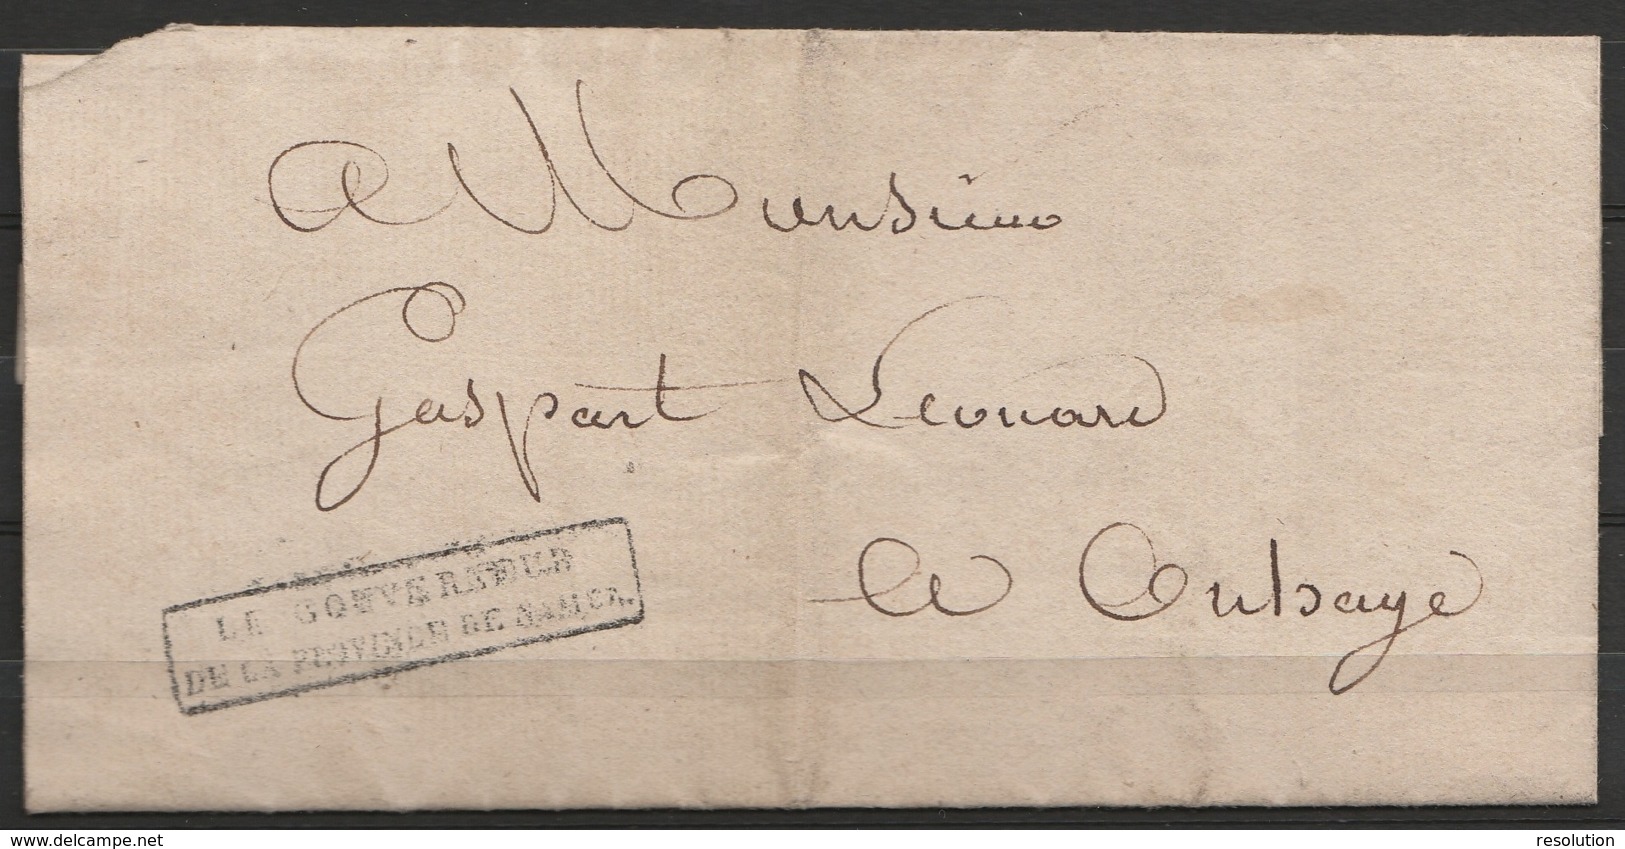 A Monsieur
Gaspart Leonard
a Onhaye
LE GOUVERNEUR
DE LA PROVINCE DE NAMUR.
delcampe.net
resolution